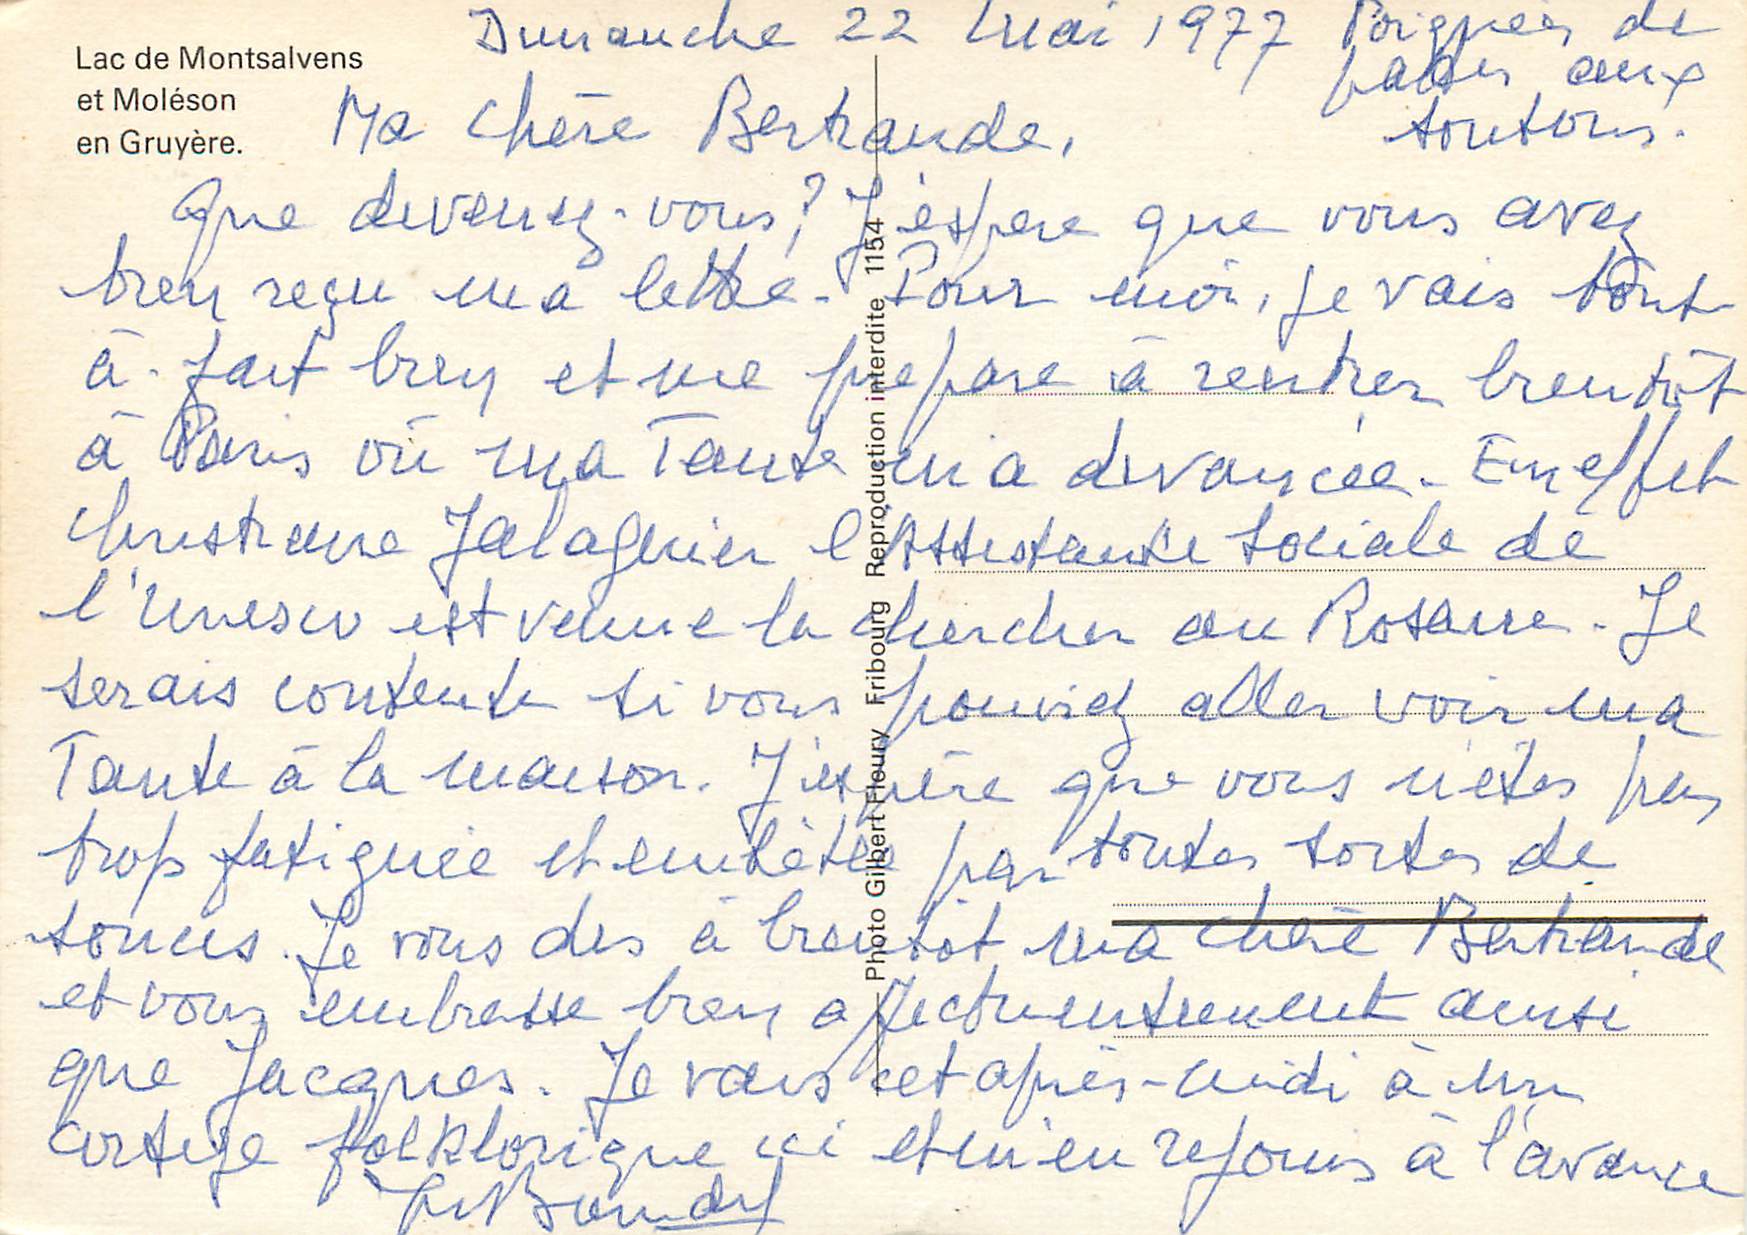 Lac de Montsalvens
et Moléson
en Gruyère.
Dimanche 22 Mai 1977
Poignées de
pattes aux
toutous.
Ma chère Bertrande,
Que devenez-vous? J'espère que vous avez
bien reçu ma lettre. Pour moi, je vais tout
à fait bien et me prépare à rentrer bientôt
à Paris où ma Tante m'a devancée. En effet
Christiane Jalaguier l'Assistante Sociale de
l'Unesco est venue la chercher au Rosaire. Je
serais contente si vous pouviez aller voir ma
Tante à la maison. J'espère que vous n'êtes pas
trop fatiguée et embêtée par toutes sortes de
soucis. Je vous dis à bientôt ma chère Bertrande
et vous embrasse bien affectueusement ainsi
que Jacques. Je vais cet après-midi à un
cortège folklorique ici et m'en réjouis à l'avance
Photo Gilbert Fleury Fribourg Reproduction interdite 1154